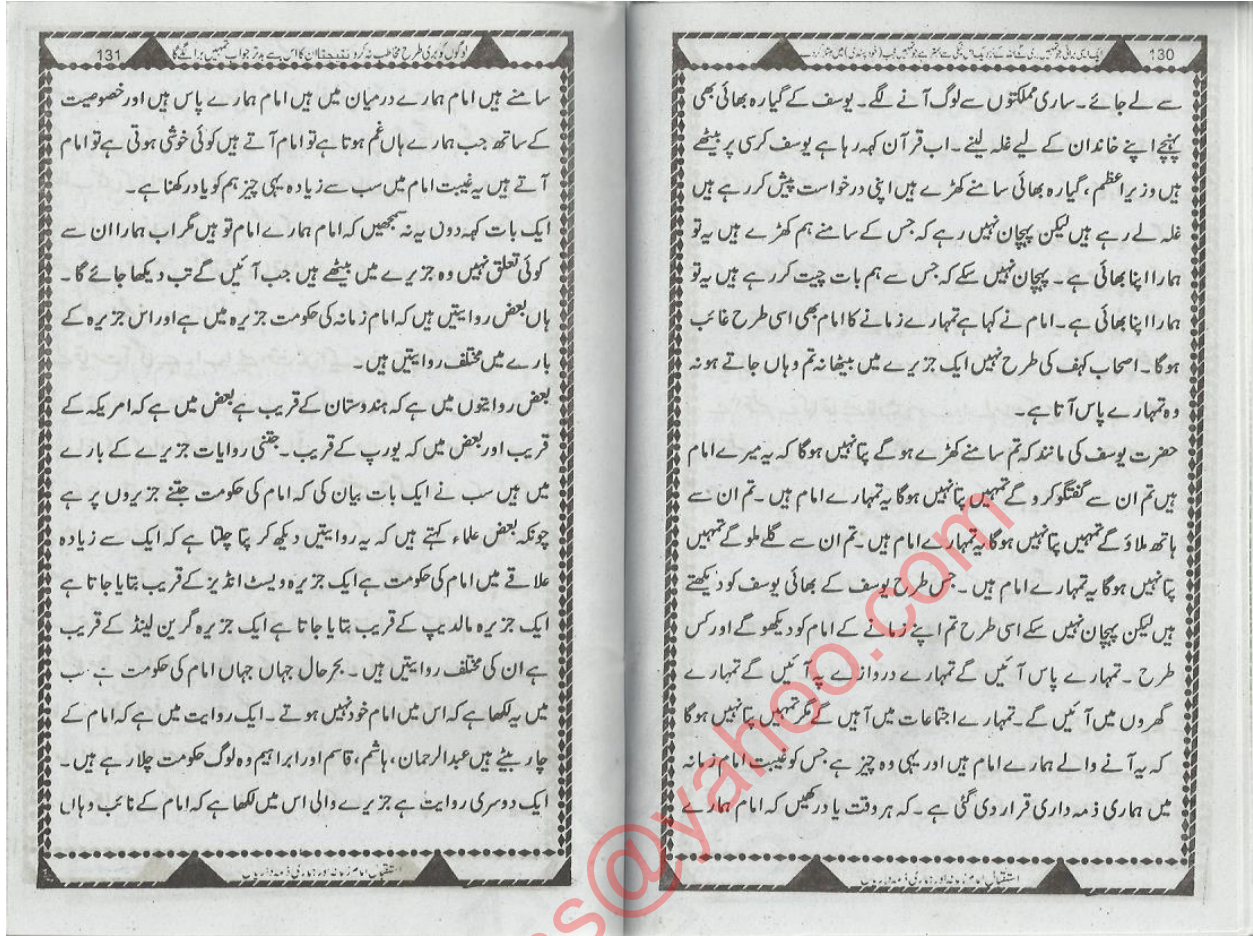 130
ایک ایسی برائی جو تمہیں بری لگے خدا کے نزدیک اس نیکی سے بہتر ہے جو تمہیں عجب (خود پسندی) میں مبتلا کر دے
سے لے جائے۔ ساری مملکتوں سے لوگ آنے لگے۔ یوسف کے گیارہ بھائی بھی
پہنچے اپنے خاندان کے لیے غلہ لینے۔ اب قرآن کہہ رہا ہے یوسف کرسی پر بیٹھے
ہیں وزیراعظم، گیارہ بھائی سامنے کھڑے ہیں اپنی درخواست پیش کر رہے ہیں
غلہ لے رہے ہیں لیکن پہچان نہیں رہے کہ جس کے سامنے ہم کھڑے ہیں یہ تو
ہمارا اپنا بھائی ہے۔ پہچان نہیں سکے کہ جس سے ہم بات چیت کر رہے ہیں یہ تو
ہمارا اپنا بھائی ہے۔ امام نے کہا ہے تمہارے زمانے کا امام بھی اسی طرح غائب
ہوگا۔ اصحاب کہف کی طرح نہیں ایک جزیرے میں بیٹھا نہ تم وہاں جاتے ہو نہ
وہ تمہارے پاس آتا ہے۔
حضرت یوسف کی مانند کہ تم سامنے کھڑے ہوگے پتا نہیں ہوگا کہ یہ میرے امام
ہیں تم ان سے گفتگو کرو گے تمہیں پتا نہیں ہوگا یہ تمہارے امام ہیں۔ تم ان سے
ہاتھ ملاؤ گے تمہیں پتا نہیں ہوگا یہ تمہارے امام ہیں۔ تم ان سے گلے ملو گے تمہیں
پتا نہیں ہوگا یہ تمہارے امام ہیں۔ جس طرح یوسف کے بھائی یوسف کو دیکھتے
ہیں لیکن پہچان نہیں سکے اسی طرح تم اپنے زمانے کے امام کو دیکھو گے اور کس
طرح۔ تمہارے پاس آئیں گے تمہارے دروازے پہ آئیں گے تمہارے
گھروں میں آئیں گے۔ تمہارے اجتماعات میں آہیں گے مگر تمہیں پتا نہیں ہوگا
کہ یہ آنے والے ہمارے امام ہیں اور یہی وہ چیز ہے جس کو غیبت امام زمانہ
میں ہماری ذمہ داری قرار دی گئی ہے۔ کہ ہر وقت یاد رکھیں کہ امام ہمارے
استقبال امام زمانہ اور ہماری ذمہ داریاں
131
لوگوں کو بری طرح مخاطب نہ کرو ان کا اس سے بدتر جواب تمہیں برا لگے گا
سامنے ہیں امام ہمارے درمیان میں ہیں امام ہمارے پاس ہیں اور خصوصیت
کے ساتھ جب ہمارے ہاں غم ہوتا ہے تو امام آتے ہیں کوئی خوشی ہوتی ہے تو امام
آتے ہیں یہ غیبت امام میں سب سے زیادہ یہی چیز ہم کو یاد رکھنا ہے۔
ایک بات کہہ دوں یہ نہ سمجھیں کہ امام ہمارے امام تو ہیں مگر اب ہمارا ان سے
کوئی تعلق نہیں وہ جزیرے میں بیٹھے ہیں جب آئیں گے تب دیکھا جائے گا۔
ہاں بعض روایتیں ہیں کہ امام زمانہ کی حکومت جزیرہ میں ہے اور اس جزیرہ کے
بارے میں مختلف روایتیں ہیں۔
بعض روایتوں میں ہے کہ ہندوستان کے قریب ہے بعض میں ہے کہ امریکہ کے
قریب اور بعض میں کہ یورپ کے قریب۔ جتنی روایات جزیرے کے بارے
میں ہیں سب نے ایک بات بیان کی کہ امام کی حکومت جتنے جزیروں پر ہے
چونکہ بعض علماء کہتے ہیں کہ یہ روایتیں دیکھ کر پتا چلتا ہے کہ ایک سے زیادہ
علاقے میں امام کی حکومت ہے ایک جزیرہ ویسٹ انڈیز کے قریب بتایا جاتا ہے
ایک جزیرہ مالدیپ کے قریب بتایا جاتا ہے ایک جزیرہ گرین لینڈ کے قریب
ہے ان کی مختلف روایتیں ہیں۔ بحر حال جہاں جہاں امام کی حکومت ہے سب
میں یہ لکھا ہے کہ اس میں امام خود نہیں ہوتے۔ ایک روایت میں ہے کہ امام کے
چار بیٹے ہیں عبدالرحمان، ہاشم، قاسم اور ابراہیم وہ لوگ حکومت چلا رہے ہیں۔
ایک دوسری روایت ہے جزیرے والی اس میں لکھا ہے کہ امام کے نائب وہاں
استقبال امام زمانہ اور ہماری ذمہ داریاں
s@yahoo.com